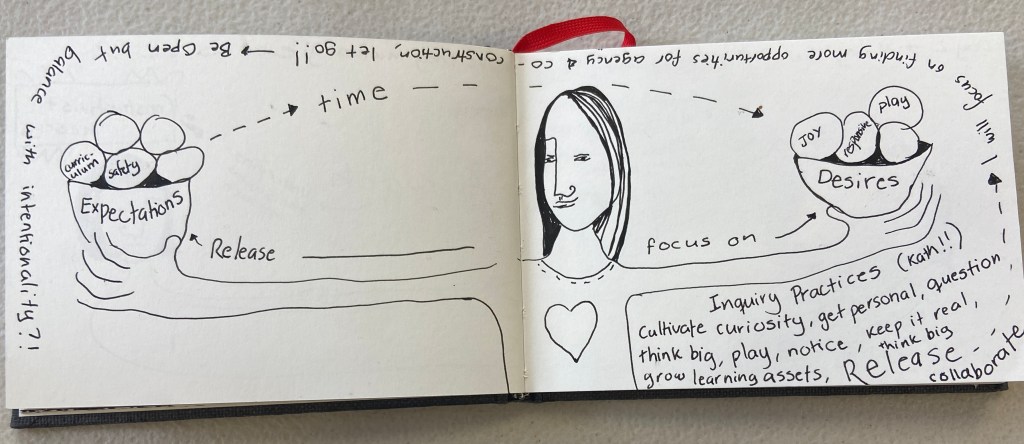 I will focus
on finding more opportunities for agency & co-
construction, let go!! → Be Open but
balance with intentionality?!
time
curric-
ulum
safety
Expectations
Release
JOY
responsive
play
Desires
focus on
Inquiry Practices (Kath!!)
Cultivate curiosity, get personal, question,
think big, play, notice, keep it real,
think big
grow learning assets, Release
collaborate